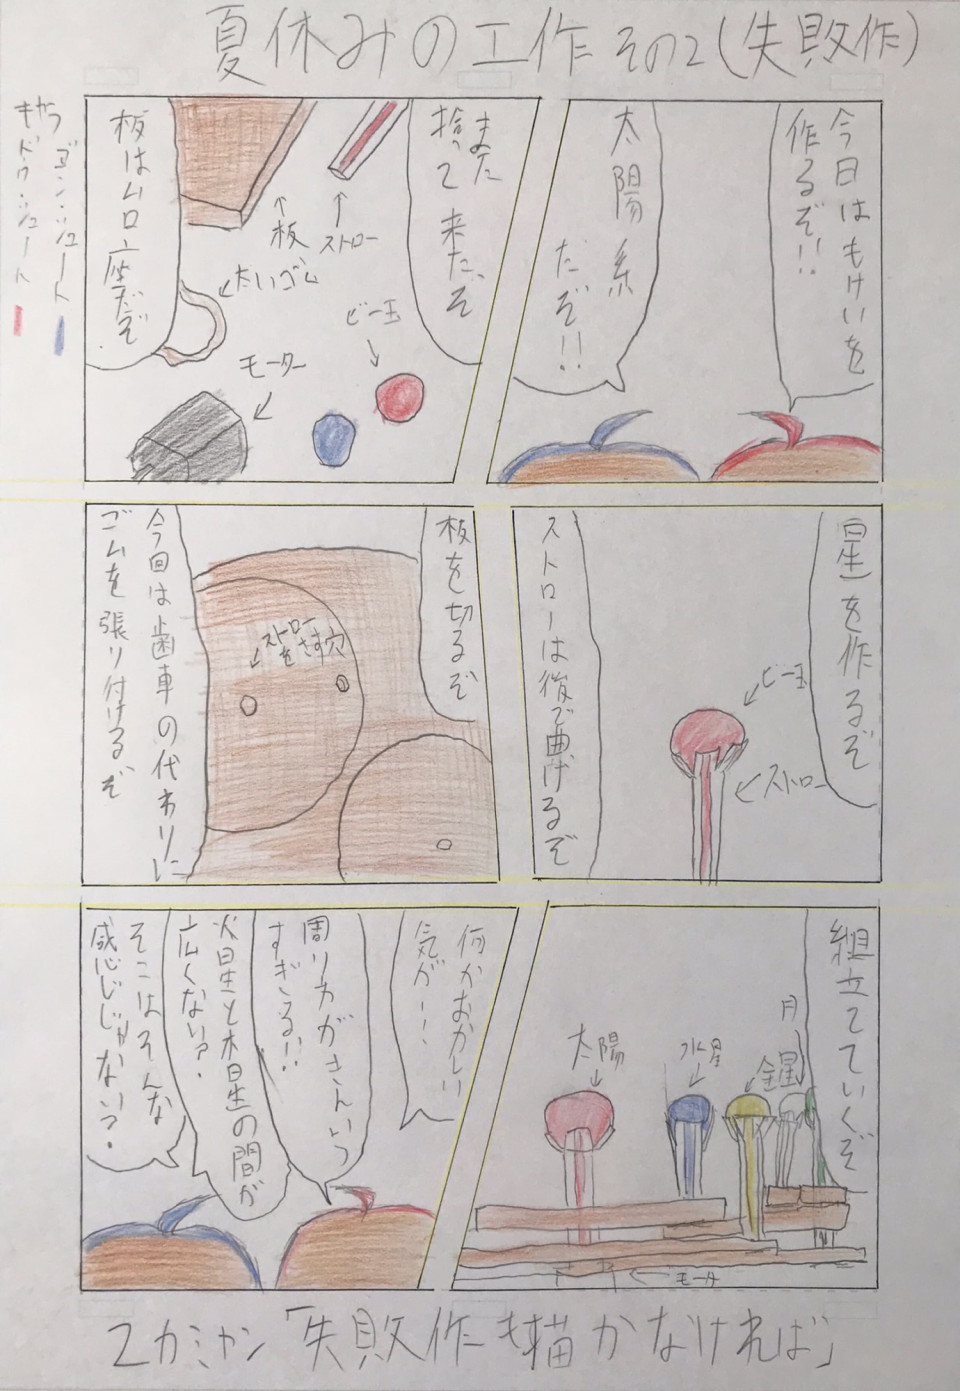 夏休みの工作 その2(失敗作)
今日はもけいを
作るぞ!!
太陽系
だぞ!!
また
捨って来たぞ
ストロー
板
たいゴム
ビー玉
モーター
板はムロ座だぞ
ゴン・シュート
キドウ・シュート
星を作るぞ
ビー玉
ストロー
ストローは後で曲げるぞ
板を切るぞ
ストロー
をさす穴
今回は歯車の代わりに
ゴムを張り付けるぞ
組立てていくぞ
月
金星
水星
太陽
モータ
何かおかしい
気が!!
周りカがきんいつ
すぎる!!
火星と木星の間が
広くない?
そこはそんな
感じじゃない?
「失敗作も描かなければ」